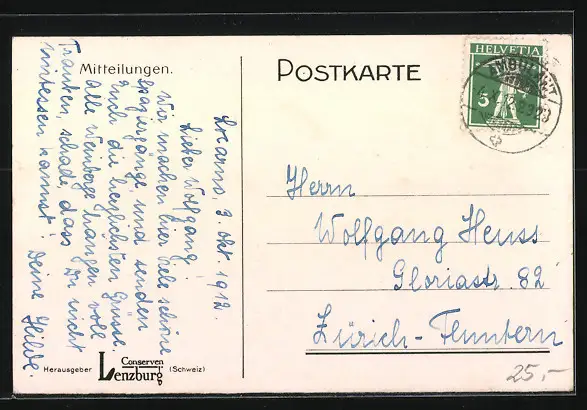 Mitteilungen.
POSTKARTE
HELVETIA
5
Locarno, 3. Okt. 1912.
Lieber Wolfgang!
Wir machen hier viele schöne
Spaziergänge, und senden
Euch die herzlichsten Grüsse.
Alle Weinberge hangen voll
Trauben, schade, dass Du nicht
mitessen kannst! Deine Hilde.
Herrn
Wolfgang Heuss
Gloriastr. 82
Zürich-Fluntern
Herausgeber Conserven Lenzburg (Schweiz)
25,-